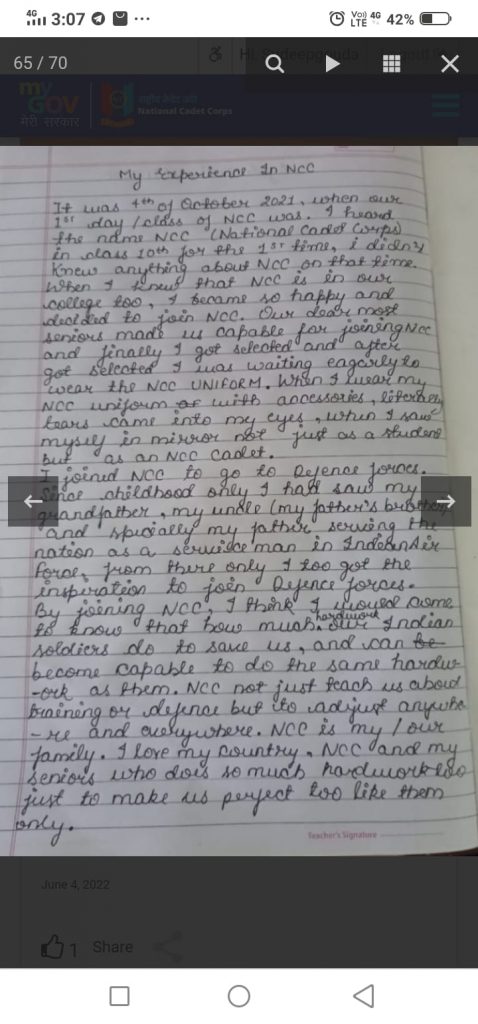 4G 3:07 Vo) 4G LTE 42%
65 / 70
my
GOV
मेरी सरकार
National Cadet Corps
My Experience In NCC
It was 4th of October 2021, when our
1st day / class of NCC was. I heard
the name NCC (National Cadet Corps)
in class 10th for the 1st time, i didn't
knew anything about NCC on that time.
When I knew that NCC is in our
college too, I became so happy and
decided to join NCC. Our dear most
seniors made us capable for joining NCC
and finally I got selected and after
got selected I was waiting eagerly to
wear the NCC UNIFORM. When I wear my
NCC uniform with accessories, literally
tears came into my eyes, when I saw
myself in mirror not just as a student
but as an NCC cadet.
I joined NCC to go to Defence forces.
Since childhood only I had saw my
grandfather, my uncle (my father's brother)
and specially my father serving the
nation as a service man in Indian Air
force, from there only I too got the
inspiration to join Defence forces.
By joining NCC, I think I would come
to know that how much hardwork our Indian
soldiers do to save us, and can be
become capable to do the same hardw-
-ork as them. NCC not just teach us about
training or defence but to adjust anywhe
-re and everywhere. NCC is my / our
family. I love my country, NCC and my
seniors who does so much hardwork too
just to make us perfect too like them
only.
Teacher's Signature
June 4, 2022
1 Share